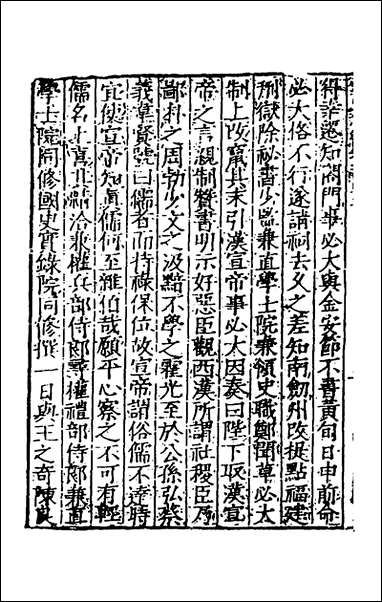 遷知閤門事必大與金安節不書黃旬日申前命
必大格不行遂請祠去久之差知南劔州改提點福建
刑獄除祕書少監兼直學士院兼領史職鄭聞草必大
制上改竄其末引漢宣帝事必大因奏曰陛下取漢宣
帝之言親制贊書明示好惡臣觀西漢所謂社稷臣乃
鄙朴之周勃少文之汲黯不學之霍光至於公孫弘蔡
義韋賢號曰儒者而持祿保位故宣帝謂俗儒不達時
宜使宣帝知眞儒何至雜伯哉願平心察之不可有輕
儒名上喜其精洽兼權兵部侍郎尋權禮部侍郎兼直
學士院同修國史實錄院同修撰一日與王之奇陳良